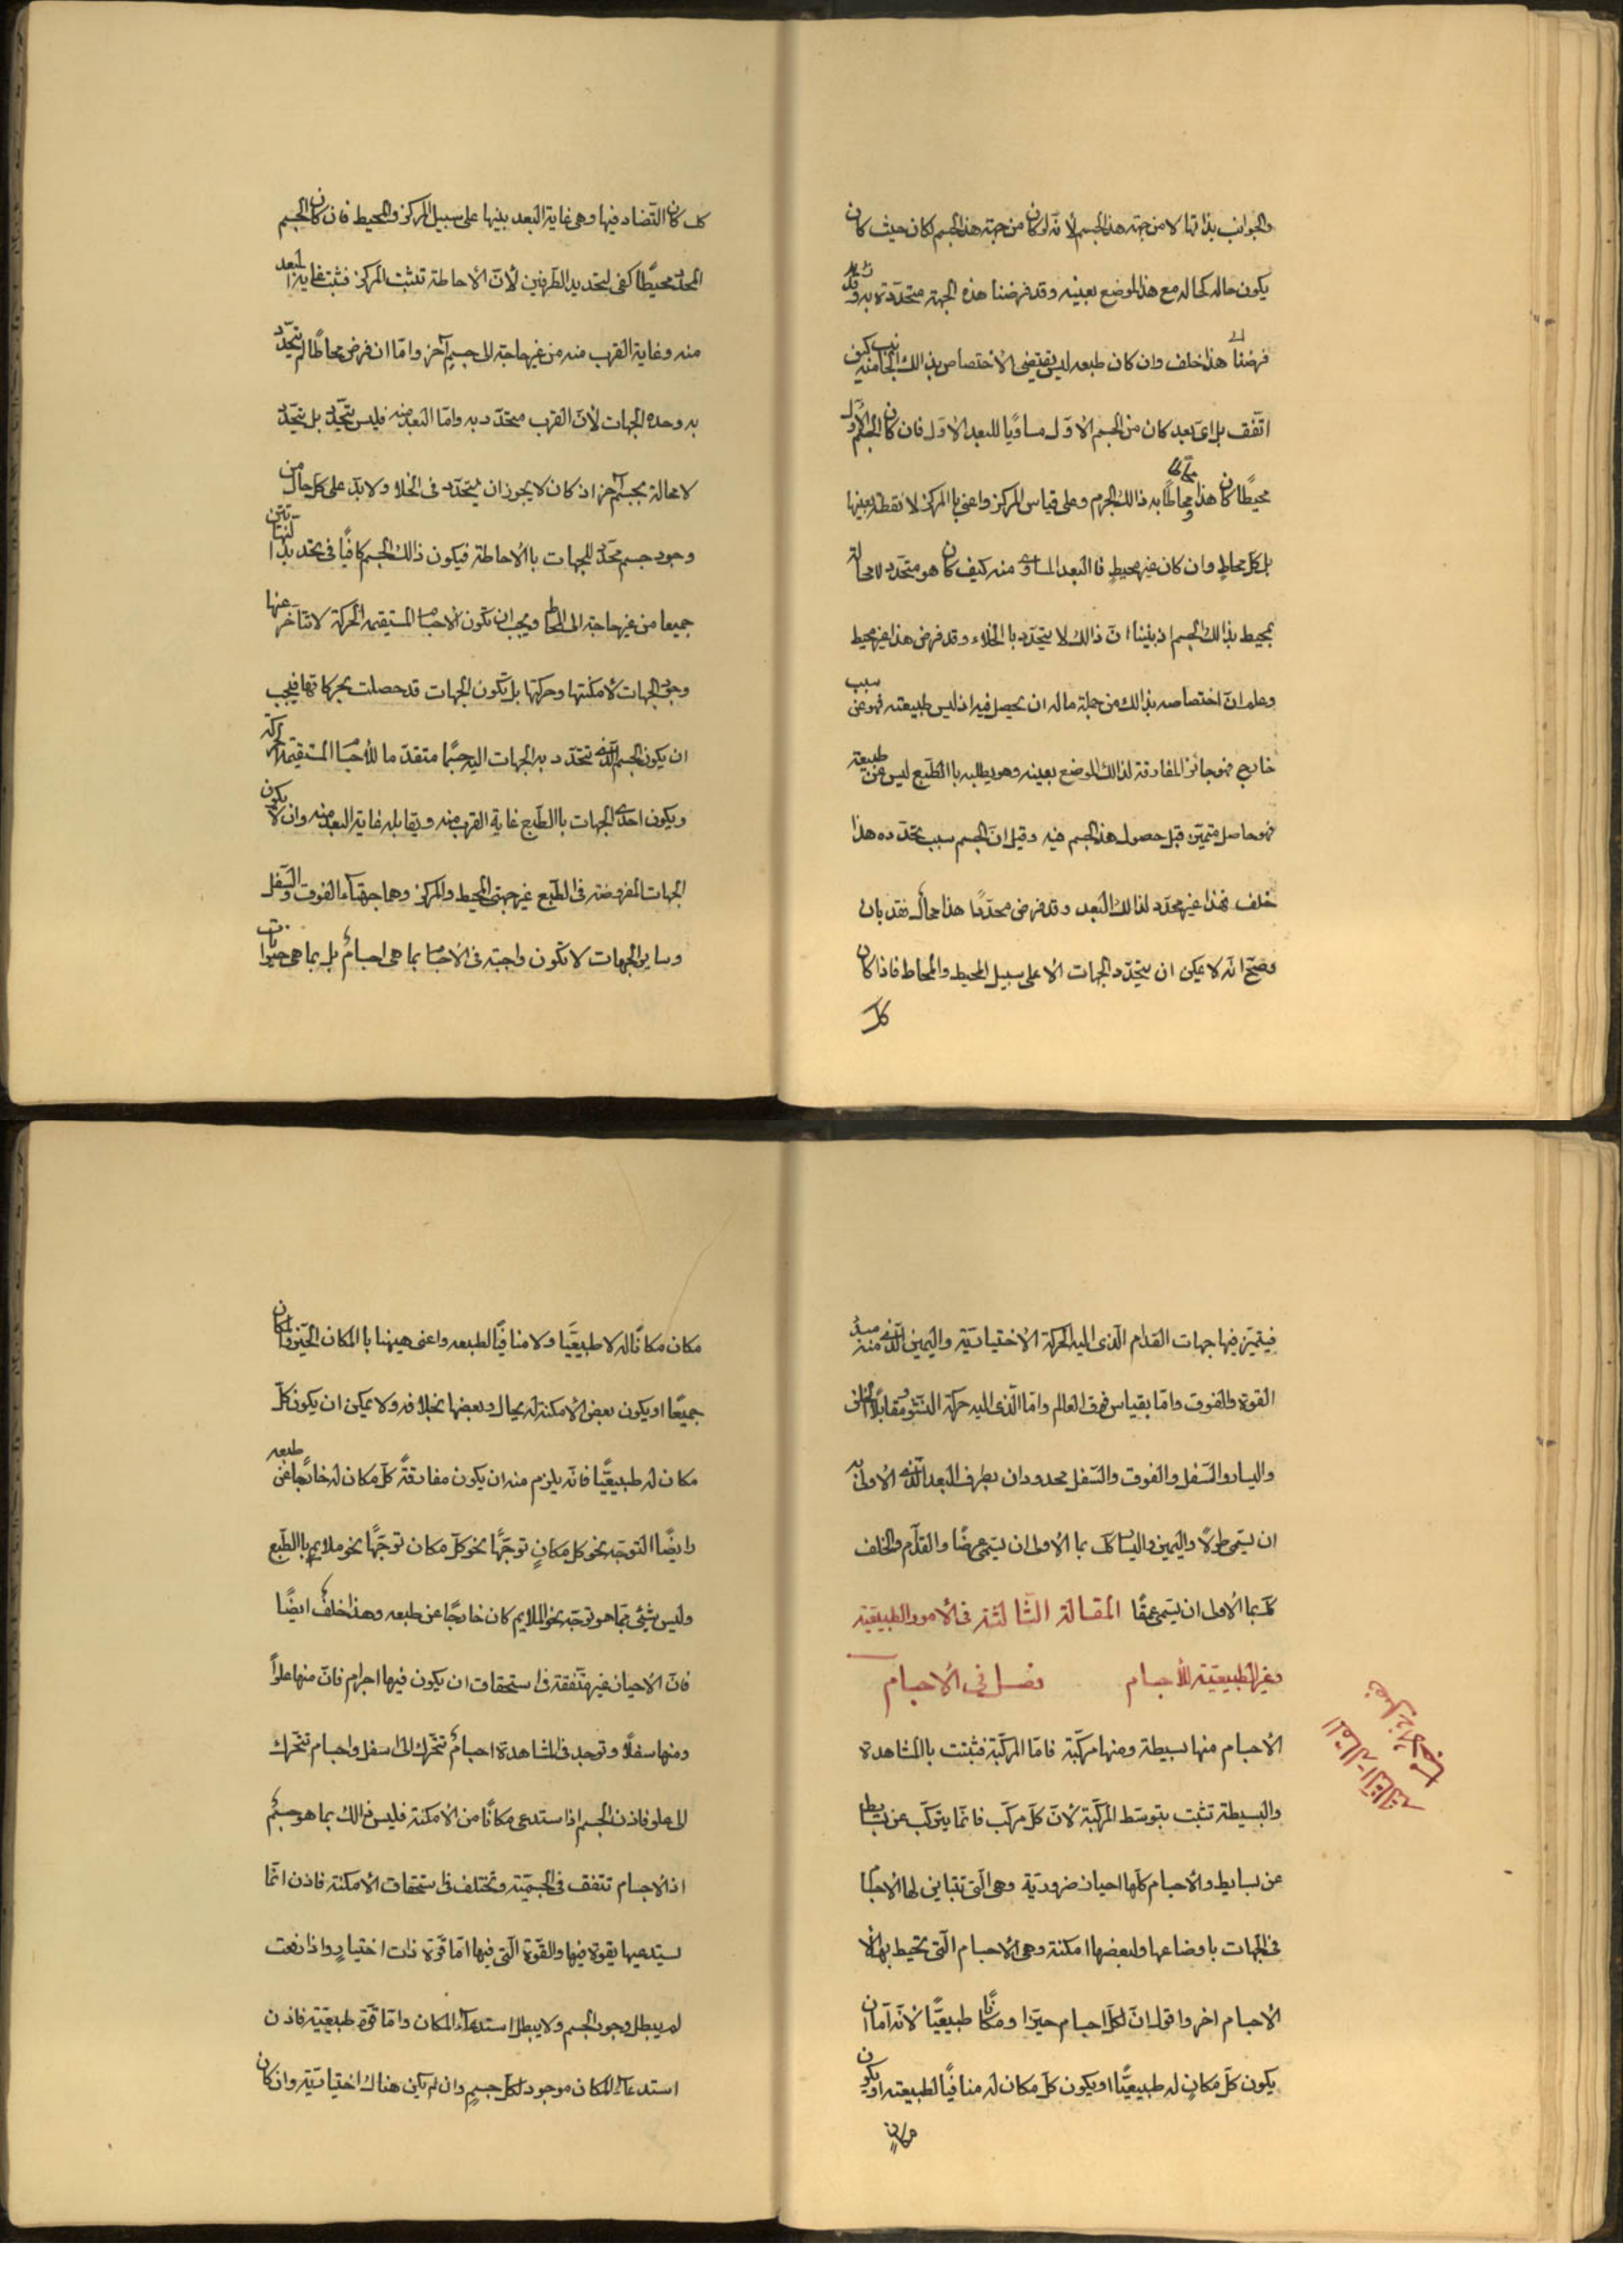 والجوانب بذاتها لا من جهة هذا الجسم لأنه لو كان من جهة هذا الجسم لكان حيث كان
يكون حاله كحاله مع هذا الموضع بعينه وقد فرضنا هذه الجهة متحددة به وقد
فرضنا هذا خلف وان كان طبعه ليس يقتضى الأختصاص بذالك الجانب منه كيف
اتفق بل اى بعد كان من الجسم الاول مساويا للبعد الاول فان كان الجسم الأول
محيطًا كان هذا محاطًا به ذالك الجرم وعلى قياس المركز واعنى با المركز لا نقطة بعينها
بل كل محاط وان كان غير محيط فا البعد المساوى منه كيف كان هو متحدد لا محالة
بمحيط بذالك الجسم اذ بيننا ان ذالك لا يتحدد با الخلاء وقد فرض هذا غير محيط
وعلم ان اختصاصه بذالك من جملة ماله ان يحصل فيه اذ ليس طبيعته فهو عن سبب
خارج فهو جائز المفارقة لذالك الموضع بعينه وهو يطلبه با الطبع ليس عن طبيعة
فهو حاصل متميز قبل حصول هذا الجسم فيه وقيل ان الجسم سبب تحدده هذا
خلف فهذا غير محدد لذالك البعد وقد فرض محددًا هذا محال فقد بان
وصح انه لا يمكن ان يتحدد الجهات الا على سبيل المحيط والمحاط فاذا كان
كل
كل كان التضاد فيها وهى غاية البعد بينها على سبيل المركز والمحيط فان كان الجسم
المحدد محيطًا كفى لتحديد الطرفين لأن الأحاطة تثبت المركز فثبت غاية البعد
منه وغاية القرب منه من غير حاجة الى جسمٍ آخر واما ان فرض محاطًا لم يتحدد
به وحده الجهات لأن القرب متحدد به واما البعد منه فليس يتحدد بل يتحدد
لا محالة بجسم آخر اذ كان لا يجوز ان يتحدد فى الخلاء ولا بد على كل حال من
وجود جسم محدد للجهات با الأحاطة فيكون ذالك الجسم كافيًا فى تحديد النهايتين
جميعا من غير حاجة الى المحاط ويجب ان تكون الأجسام المستقيمة الحركة لا تتأخر عنها
وجود الجهات لأمكنتها وحركتها بل تكون الجهات قد حصلت بحركاتها فيجب
ان يكون الجسم الذى تتحدد به الجهات اليه جسمًا متقدما للأجسام المستقيمة الحركة
ويكون احدى الجهات با الطبع غاية القرب منه ويقابله غاية البعد منه وان لا يكون
الجهات المفروضة فى الطبع غير جهتى المحيط والمركز وهما جهتا الفوق والسفل
وساير الجهات لا تكون واجبة فى الأجسام بما هى اجسامٌ بل بما هى حيوانات
فيتميز فيها جهات القدام الذى اليه الحركة الأختيارية واليمين الذى منه مبدء
القوة والفوق واما بقياس فوق العالم واما الذى اليه حركة النشو ومقابلا الخلف
واليسار والسفل والفوق والسفل محدودان بطرف البعد الذى الأولى به
ان يسمى طولًا واليمين واليسار كل بما الأولى ان يسمى عرضًا والقدام والخلف
كل بما الأولى ان يسمى عمقًا المقالة الثالثة فى الأمور الطبيعية
وغير الطبيعية للأجسام فصل فى الأجسام
الأجسام منها بسيطة ومنها مركبة فاما المركبة فثبتت با المشاهدة
والبسيطة تثبت بتوسط المركبة لأن كل مركب فانما يتركب عن بسايط
عن بسايط والأجسام كلها احيان ضرورية وهى التى تتباين لها الأجسام
فى الجهات باوضاعها ولبعضها امكنة وهى الأجسام التى تحيط بها الا
الأجسام اخر واقول ان لكل اجسام حيزا ومكانًا طبيعيًا لأنه اما ان
يكون كل مكانٍ له طبيعيًا او يكون كل مكان له منافيًا لطبيعته او يكون
مكانٍ
مكان مكانًا له لا طبيعيًا ولا منافيًا لطبعه واعنى هيهنا با المكان الحيز والمكان
جميعًا او يكون بعض الأمكنة له بحال وبعضها بخلافه ولا يمكن ان يكون كل
مكان له طبيعيًا فانه يلزم منه ان يكون مفارقةً كل مكان له خارجًا عن طبعه
وايضًا التوجه نحو كل مكانٍ توجهًا نحو كل مكان توجهًا نحو ملايم با الطبع
وليس شئى مما هو توجه نحو الملايم كان خارجًا عن طبعه وهذا خلفٌ ايضًا
فان الأحيان غير متفقة فى استحقاق ان يكون فيها اجرام فان منها علوًا
ومنها سفلًا وتوجد فى المشاهدة اجسامٌ تتحرك الى اسفل واجسام تتحرك
الى علو فاذن الجسم اذا استدعى مكانًا من الأمكنة فليس ذالك بما هو جسمٌ
اذ الأجسام تتفق فى الجسمية وتختلف فى استحقاق الأمكنة فاذن انما
يستدعيها بقوة فيها والقوة التى فيها اما قوة ذات اختيارٍ واذا رفعت
لم يبطل وجود الجسم ولا يبطل استدعاء المكان واما قوة طبيعية فاذن
استدعاء المكان موجود لكل جسمٍ وان لم يكن هناك اختيارية وان كان